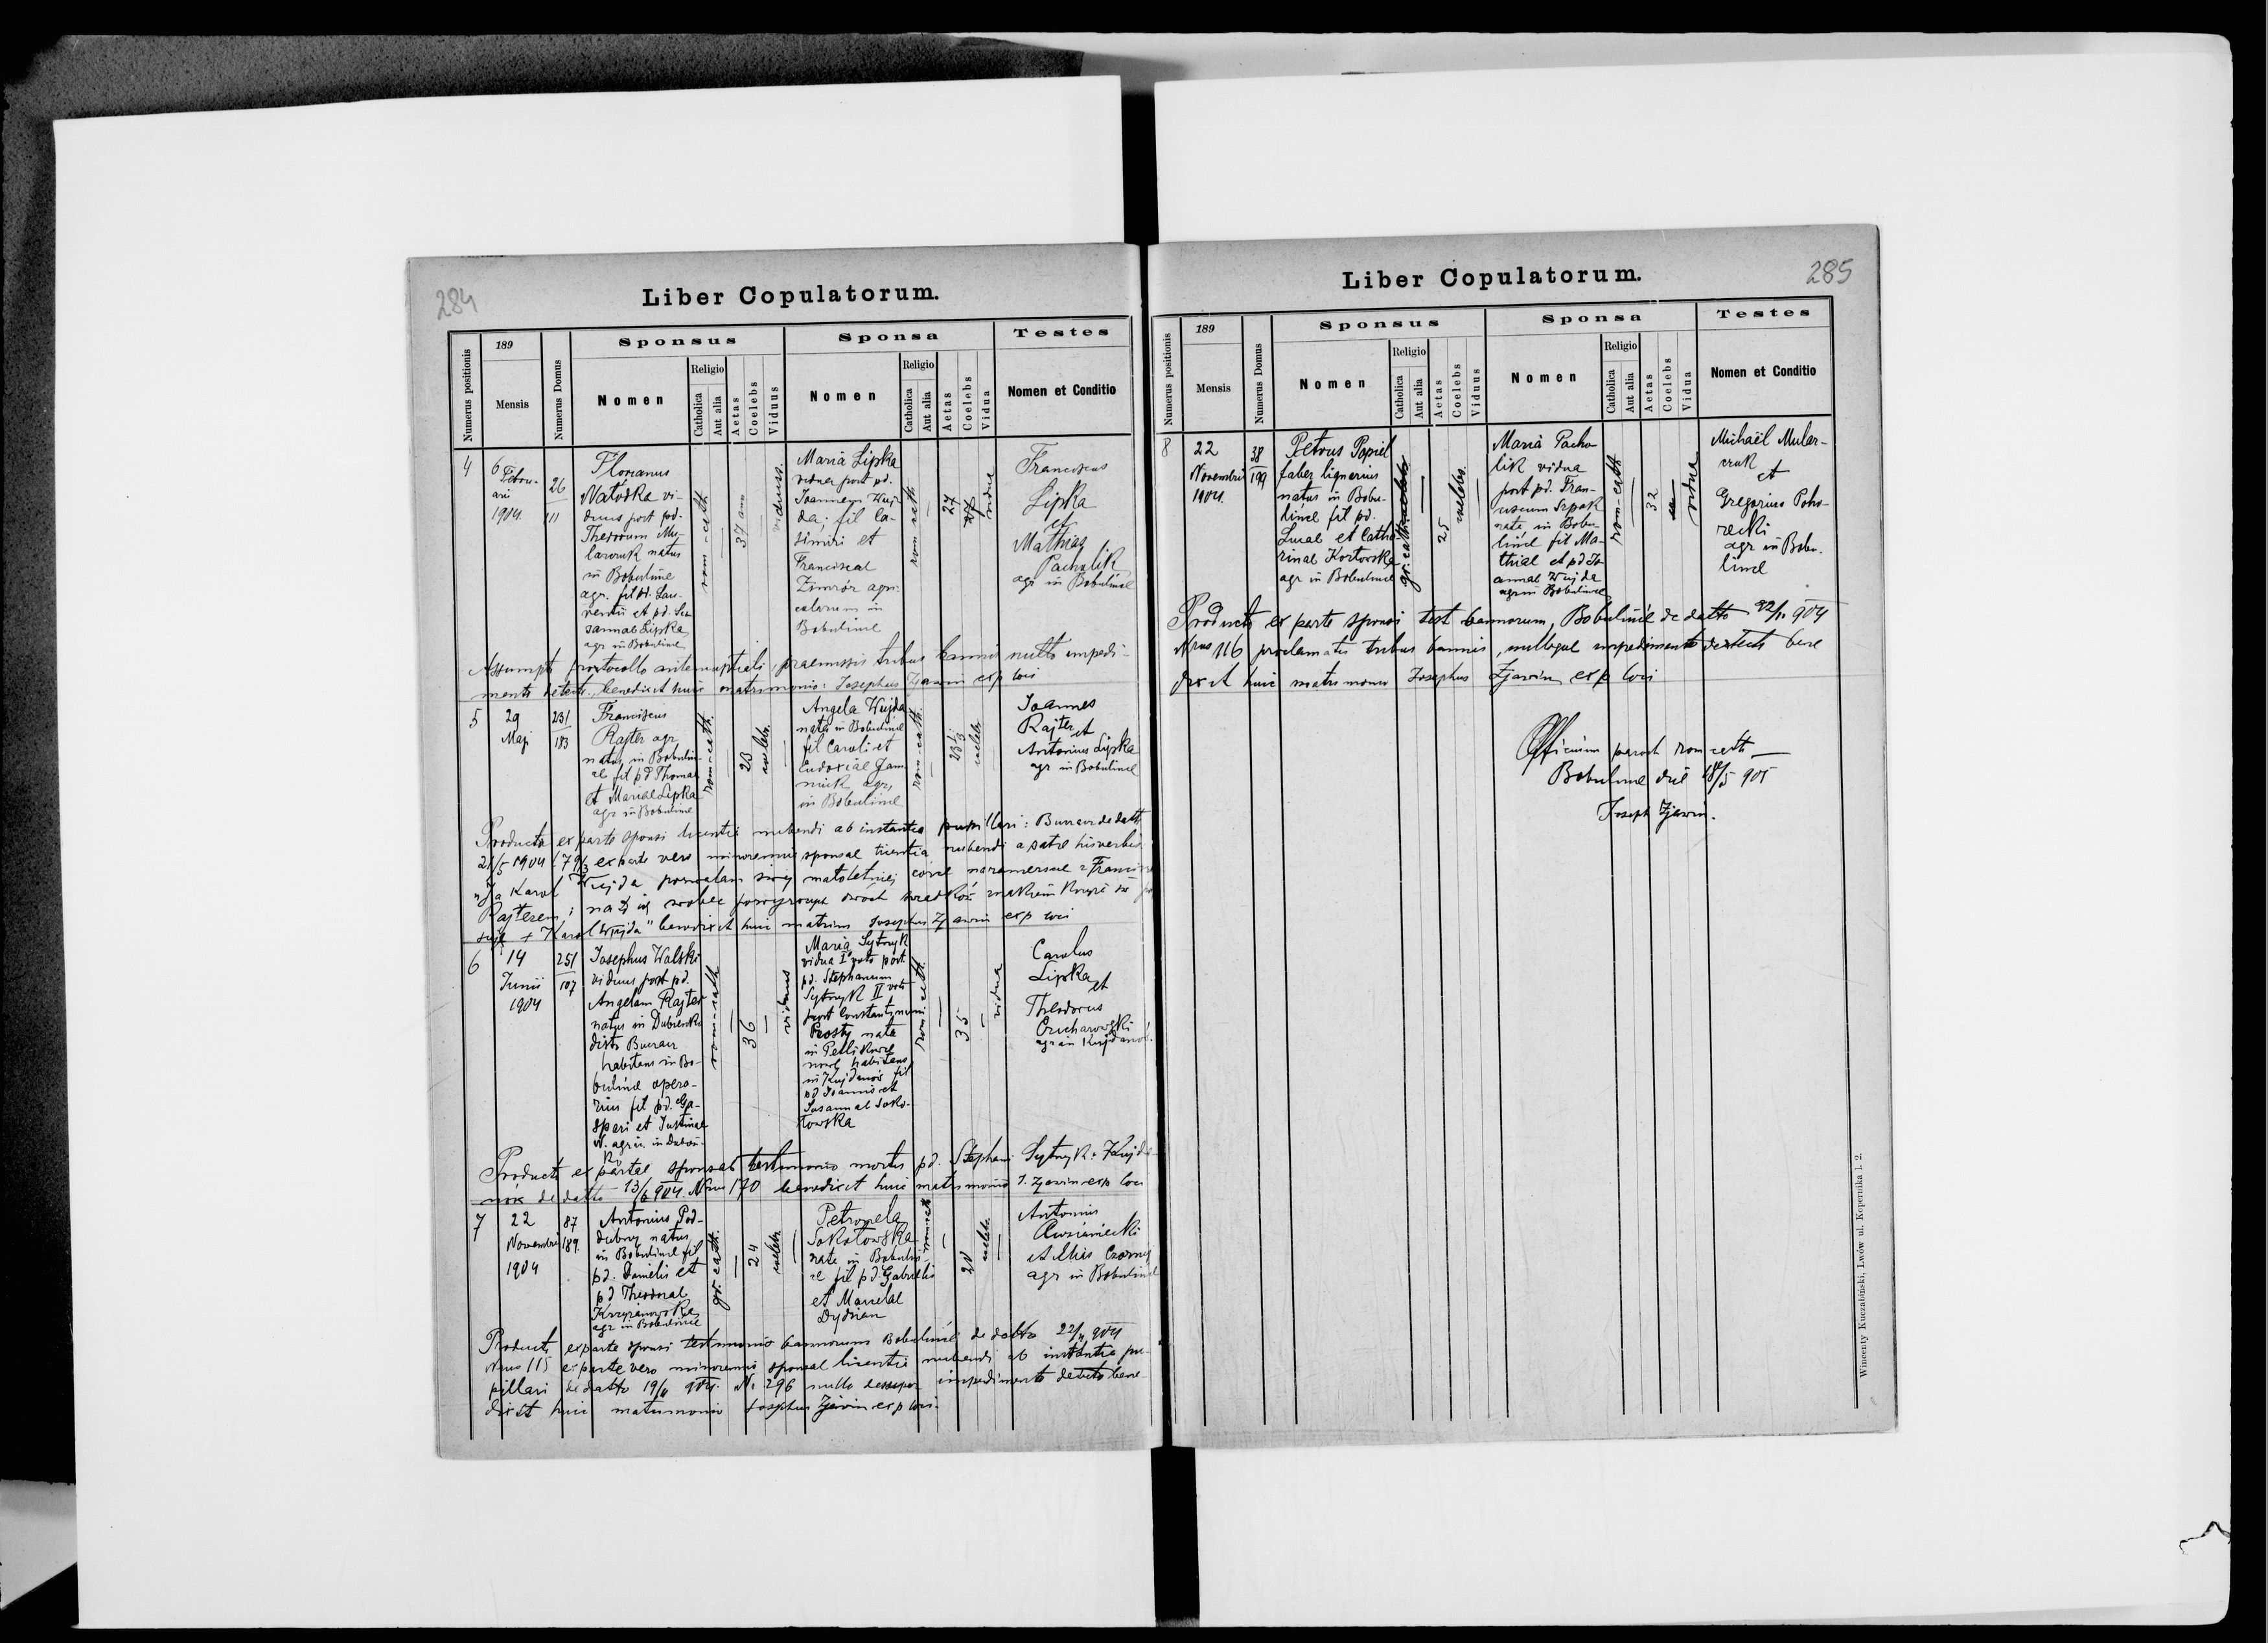 284
Liber Copulatorum.
Numerus positionis
189
Mensis
Numerus Domus
Sponsus
Nomen
Religio
Catholica
Aut alia
Aetas
Coelebs
Viduus
Sponsa
Nomen
Religio
Catholica
Aut alia
Aetas
Coelebs
Vidua
Testes
Nomen et Conditio
4
6
Febru-
arii
1904
26
111
Florianus
Natorska vi-
duus post pd.
Theodorum Mu-
larczuk natus
in Bobulińce
agr. fil pd. Lau-
rentii et pd. Su-
sannae Lipka
agr in Bobulińce
rom cath
37 ann
viduus.
Maria Lipka
vidua post pd.
Joannem Wuj-
da; fil Ca-
simiri et
Franciscae
Zimróz agri-
colarum in
Bobulińce
rom cath
27
vidua
Franciscus
Lipka
et
Mathias
Pacholik
agr in Bobulińce
Assumpt protocollo antenuptiali, praemissis tribus bannis nullo impedi-
mento detecto benedixit huic matrimonio: Josephus Zjawin exp loci
5
29
Maji
231
183
Franciscus
Rajter agr
natus in Bobuliń-
ce fil pd Thomae
et Mariae Lipka
agr in Bobulińce
rom-cath.
23
caelebs.
Angela Wujda
nata in Bobulińce
fil Caroli et
Eudoxiae Jam-
nick agr,
in Bobulińce
rom-cath.
23
caelebs
Joannes
Rajter et
Antonius Lipka
agr in Bobulińce
Producta ex parte sponsi licentia nubendi ab instantia pupillari: Buczacz de datto
21/5 1904 ex parte vero minorennis sponsae licentia nubendi a patre his verbis:
"Ja Karol Wujda pozwalam swej małoletniej córce
Rajterem;
+ Karol Wujda" benedixit huic matrim Josephus Zjawin exp loci
6
14
Junii
1904
251
107
Josephus Walski
viduus post pd.
Angelam Rajter
natus in Dubienko
distr Buczacz
habitans in Bo-
bulińce opera-
rius fil pd. Ga-
spari et Justinae
N. agr in Dubień-
ko
rom-cath
36
viduus
Maria Sytnyk
vidua I voto post
pd. Stephanum
Sytnyk II voto
post Constantinum
Prosty nata
in Petlikowce
nowe habitans
in Kujdanów fil
pd Joannis et
Susannae Soko-
łowska
rom-cath
35
vidua
Carolus
Lipka et
Theodorus
agr in Kujdanów.
Producto ex parte sponsae testimonio mortis pd. Stephani Sytnyk: Kujda-
nów de datto 13/6 904. Nrus 170 benedixit huic matrimonio J. Zjawin exp loci
7
22
Novembri
1904
87
189.
Antonius Pod-
dubny natus
in Bobulińce fil
pd. Danielis et
pd Theodorae
Krzyżanowska
agr in Bobulińce
gr. cath.
24
caelebs
Petronela
Sokołowska
nata in Bobuliń-
ce fil pd Gabrielis
et Marcelae
Dydrian
rom cath
20
caelebs
Antonius
et Elias Czorny
agr in Bobulińce
Producto ex parte sponsi testimonio bannorum Bobulińce de datto 22/11 904
Nrus 115 ex parte vero minorennis sponsae licentia nubendi ab instantia pu-
pillari de datto 19/11 904. Nr 296 nullo impedimento detecto bene-
dixit huic matrimonio Josephus Zjawin exp loci.
285
Liber Copulatorum.
Numerus positionis
189
Mensis
Numerus Domus
Sponsus
Nomen
Religio
Catholica
Aut alia
Aetas
Coelebs
Viduus
Sponsa
Nomen
Religio
Catholica
Aut alia
Aetas
Coelebs
Vidua
Testes
Nomen et Conditio
8
22
Novembri
1904.
38
199
Petrus Popiel
faber lignarius
natus in Bobu-
lińce fil pd.
Lucae et Catha-
rinae Kortowska
agr in Bobulińce
gr. cath.
25
caelebs.
Maria Pacho-
lik vidua
post pd. Fran-
ciscum Szpak
nata in Bobu-
lińce fil Ma-
thiae et pd Jo-
annae Wujda
agr in Bobulińce
rom-cath
32
vidua
Michaël Mular-
czuk
et
Gregorius Poho-
recki
agr in Bobu-
lińce
Producto ex parte sponsi test bannorum, Bobulińce de datto 22/11 904
Nrus 116 proclamatis tribus bannis, nulloque impedimento detecto bene
dixit huic matrimonio Josephus Zjawin exp loci
Officium paroch rom cath
Bobulińce die 18/5 905
Joseph Zjawin.
Wincenty Kuczabiński, Lwów ul. Kopernika l. 2.